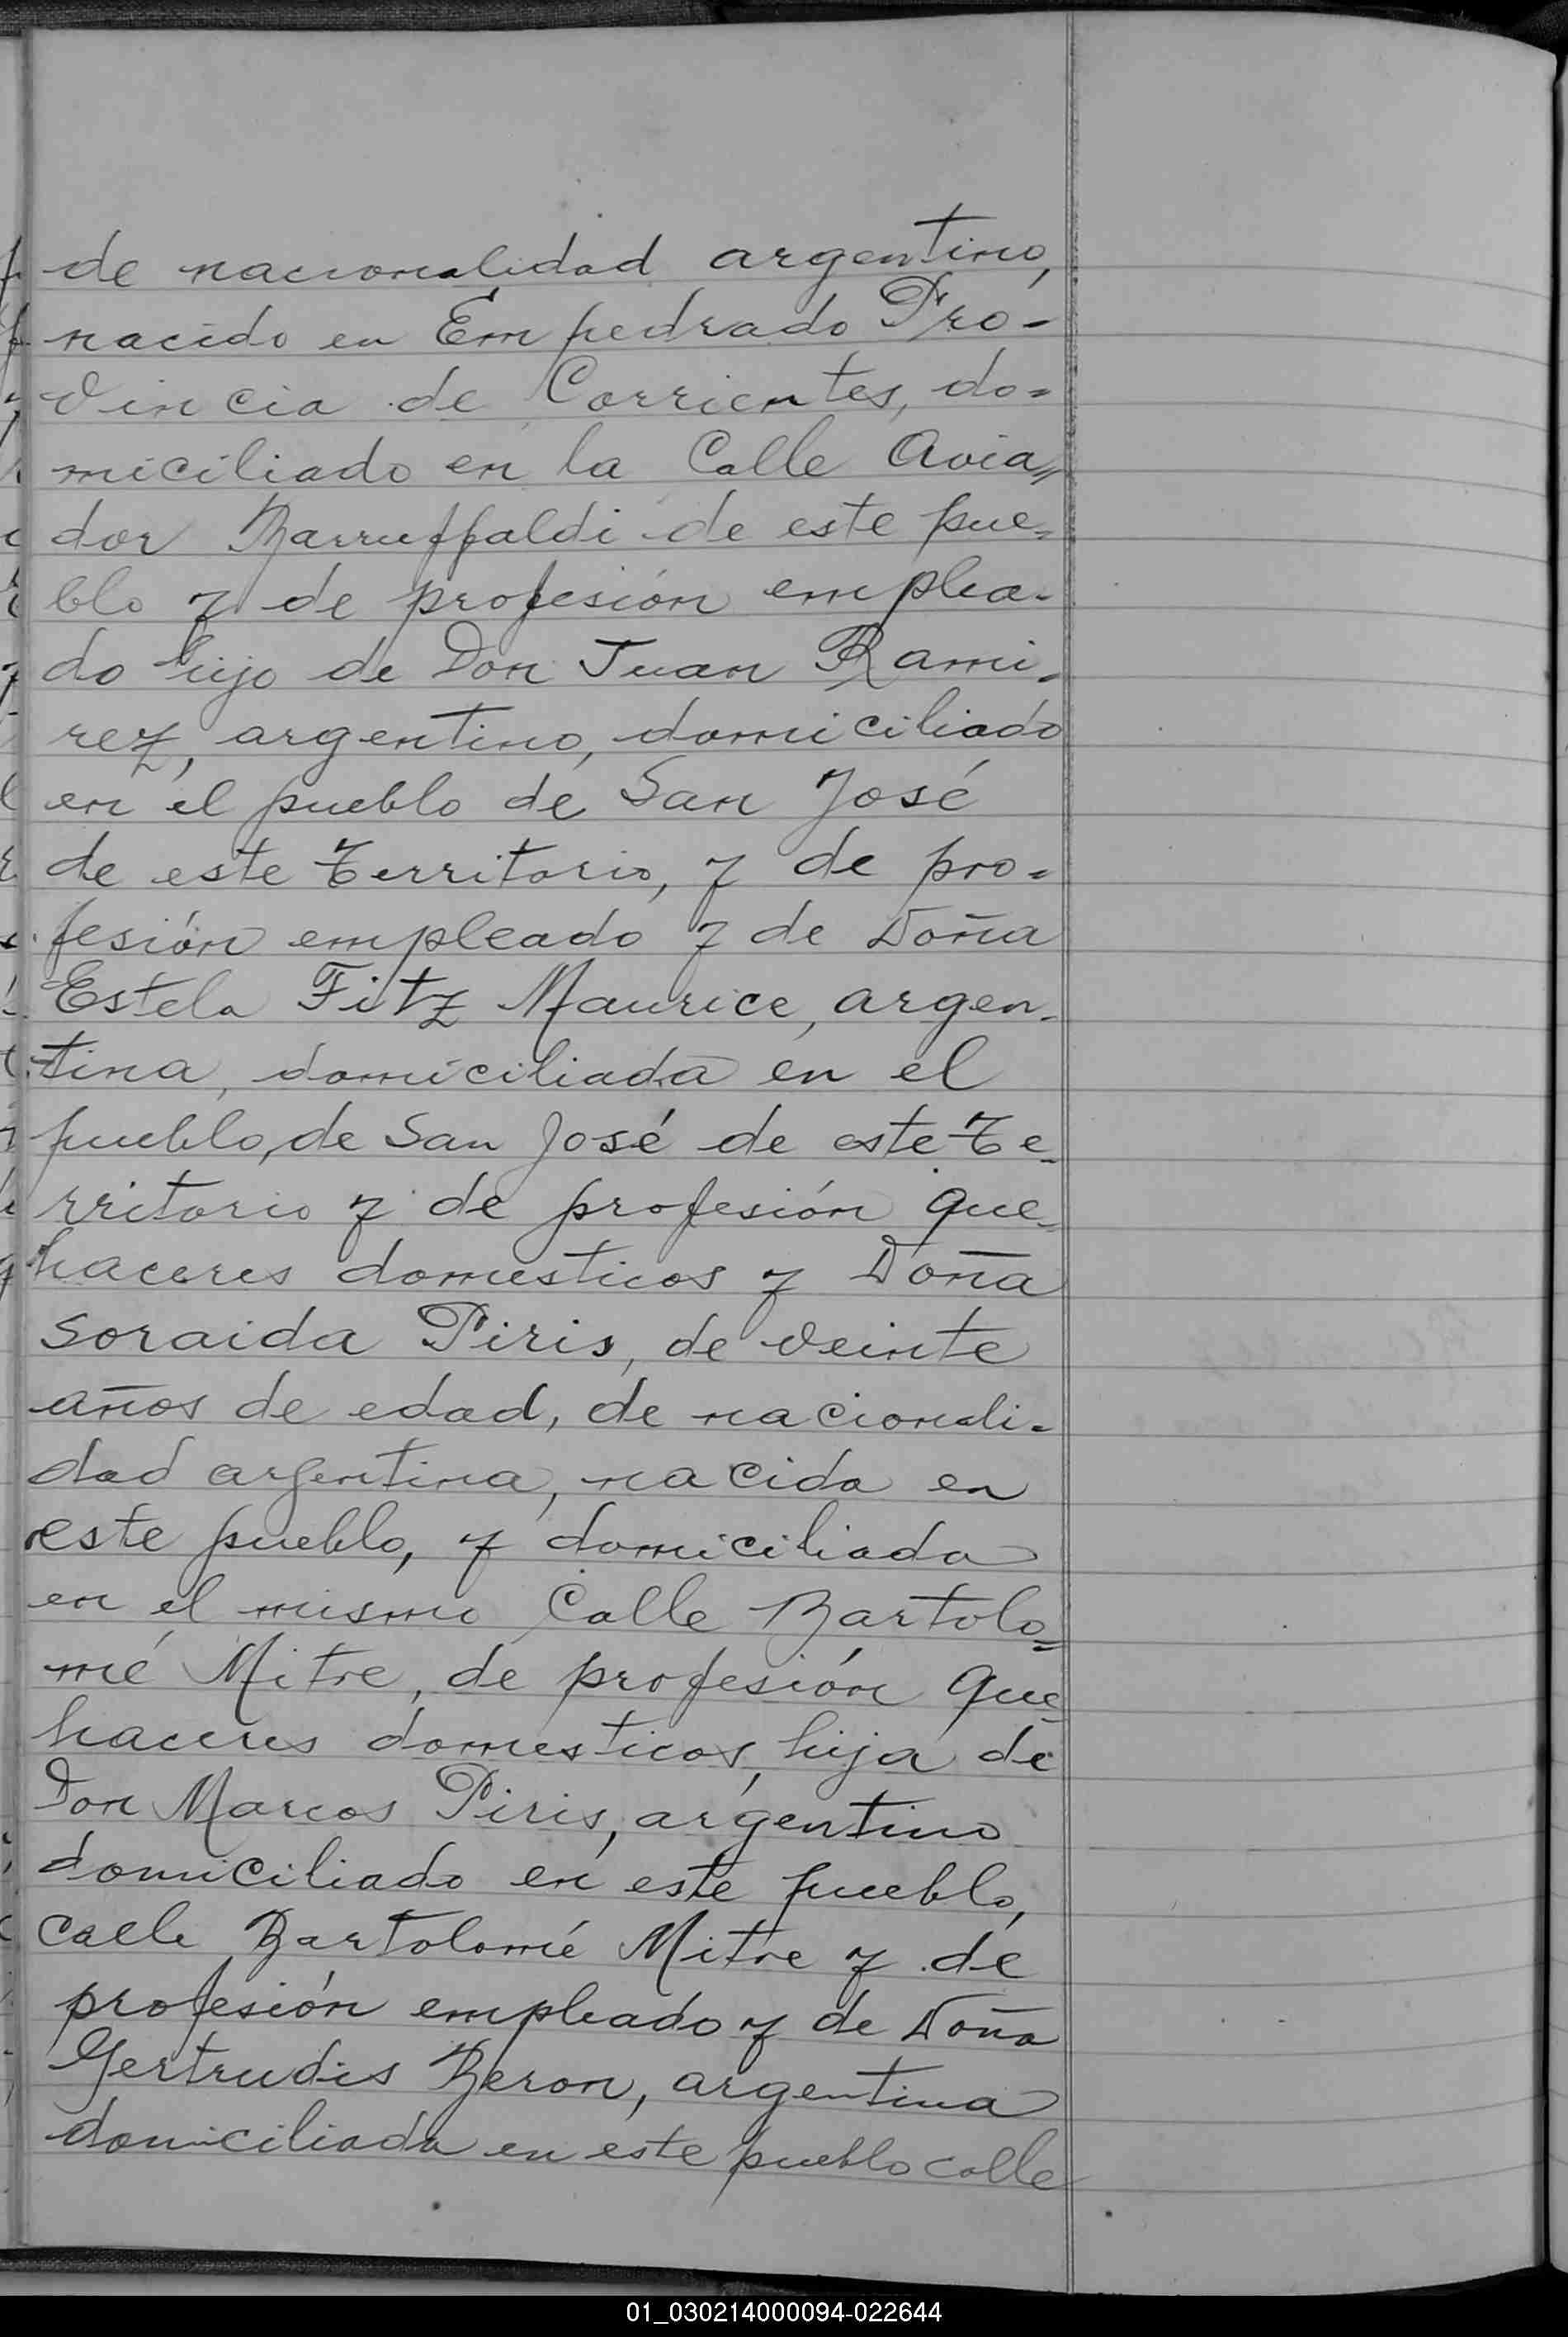 de nacionalidad argentino,
nacido en Empedrado Pro-
vincia de Corrientes, do=
miciliado en la Calle Avia„
dor Barruffaldi de este pue=
blo y de profesión emplea-
do hijo de Don Juan Rami-
rez, argentino, domiciliado
en el pueblo de San José
de este Territorio, y de pro=
fesión empleado y de Doña
Estela Fitz Maurice, argen-
tina, domiciliada en el
pueblo, de San José de este Te-
rritorio y de profesión que-
haceres domesticos y Doña
Soraida Piris, de veinte
años de edad, de nacionali-
dad argentina, nacida en
este pueblo, y domiciliada
en el mismo Calle Bartolo=
mé Mitre, de profesión que-
haceres domesticos, hija de
Don Marcos Piris, argentino
domiciliado en este pueblo,
calle Bartolomé Mitre y de
profesión empleado y de Doña
Gertrudis Beron, argentina
domiciliada en este pueblo calle
01_030214000094-022644